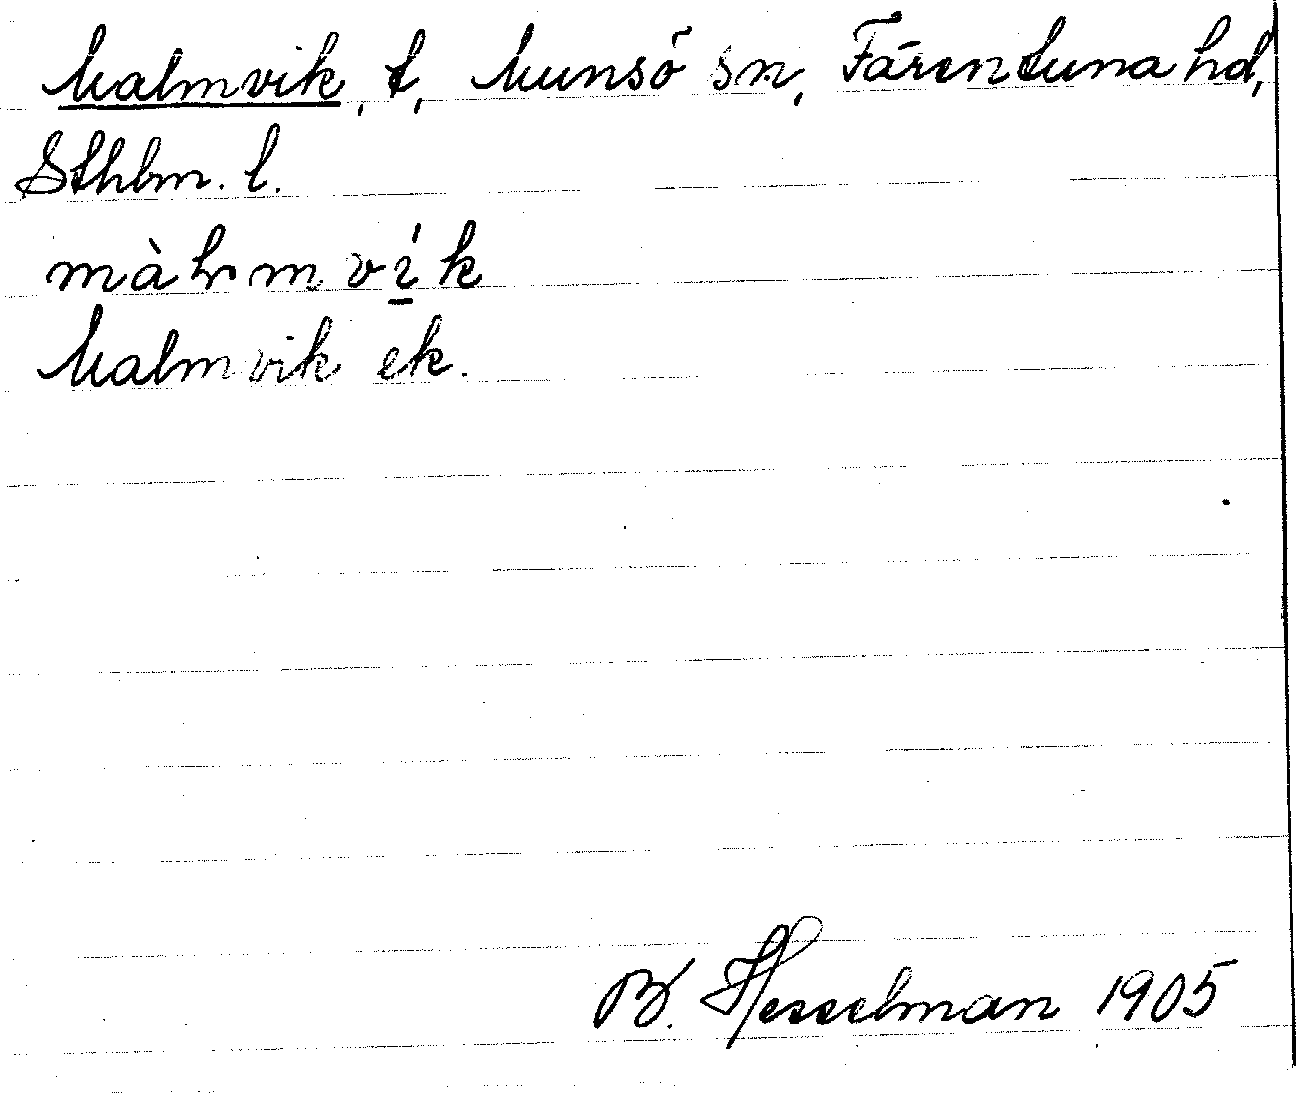 Malmvik, t, Munsö sn, Färentuna hd,
Sthlm. l.
màlmví̱k
Malmvik ek.
B. Hesselman 1905